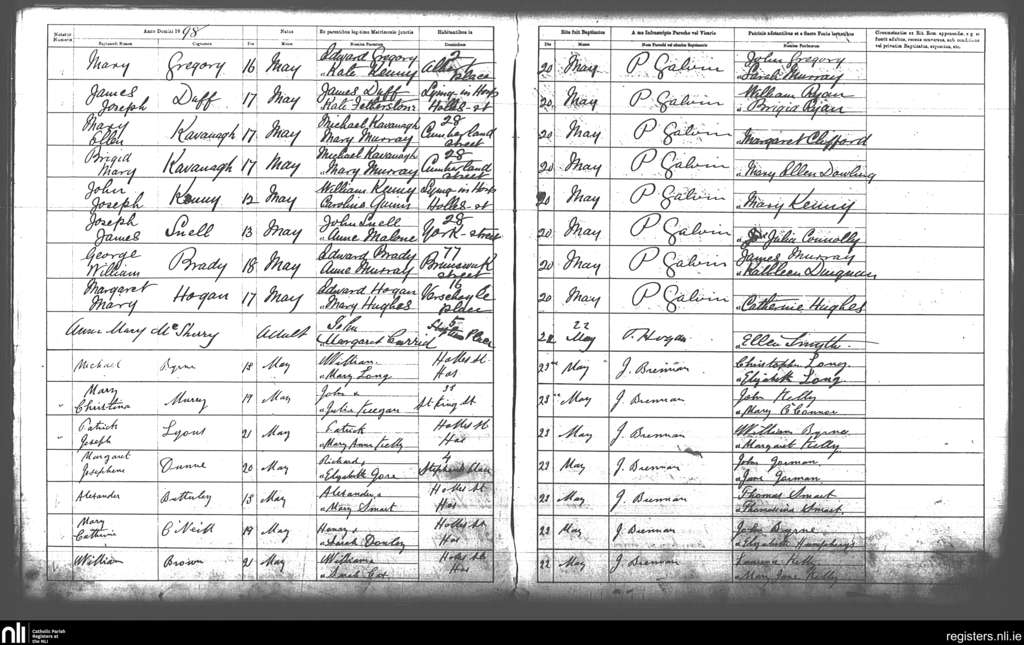 Anno Domini 1898
Natus
Ex parentibus legitimo Matrimonio junctis
Habitantibus in
Rite fuit Baptizatus
A me Subscripto Parocho vel Vicario
Patrinis adstantibus et e Sacro Fonte levantibus
Die Mense Nomina Parentum Domicilium
Die Mense Nom Parochi vel alterius Baptizantis Nomina Patrinorum
Mary Gregory 16 May Edward Gregory & Kate Kenny 2 Albert place 20 May P Galvin John Gregory & Sarah Murray
James Joseph Duff 17 May James Duff & Kate Fetherston Lying-in Hosp Holles st 20 May P Galvin William Ryan & Brigid Ryan
Mary Ellen Kavanagh 17 May Michael Kavanagh & Mary Murray 28 Cumberland street 20 May P Galvin & Margaret Clifford
Brigid Mary Kavanagh 17 May Michael Kavanagh & Mary Murray 28 Cumberland street 20 May P Galvin & Mary Ellen Dowling
John Joseph Kenny 12 May William Kenny & Caroline Lying-in Hosp Holles st 20 May P Galvin & Mary Kenny
Joseph James Snell 13 May John Snell & Anne Malone 28 York-street 20 May P Galvin & Julia Connolly
George William Brady 18 May Edward Brady & Anne Murray 77 Brunswick street 20 May P Galvin James Murray & Kathleen Duignan
Margaret Mary Hogan 17 May Edward Hogan & Mary Hughes 16 Verschoyle place 20 May P Galvin & Catherine Hughes
Anne Mary Adult John & Margaret Place 22 May P. Hogan & Ellen Smyth
Michael Byrne 18 May William & Mary Long Holles St Hos 23 May J. Brennan Christopher Long & Elizabeth Long
Mary Christina 19 May John & & Julia Keegan St King St 23 May J Brennan John Kelly & Mary O'Connor
Patrick Joseph Lyons 21 May Patrick & Mary Anne Kelly Holles St Hos 23 May J. Brennan William Byrne & Margaret Kelly
Margaret Josephine Dunne 20 May Richard & & Elizabeth Gore 4 Stephens 23 May J. Brennan John Gorman & Jane Gorman
Alexander 15 May Alexander & Mary Smart Holles St Hos 23 May J. Brennan Thomas Smart & Thomasina Smart
Mary Catherine O'Neill 19 May Henry & & Sarah Holles St Hos 22 May J. Brennan John Byrne & Elizabeth Humphreys
William Brown 21 May William & & Sarah Cox Holles St Hos 22 May J. Brennan Laurence Kelly & Mary Jane Kelly
nli Catholic Parish Registers at the NLI
registers.nli.ie